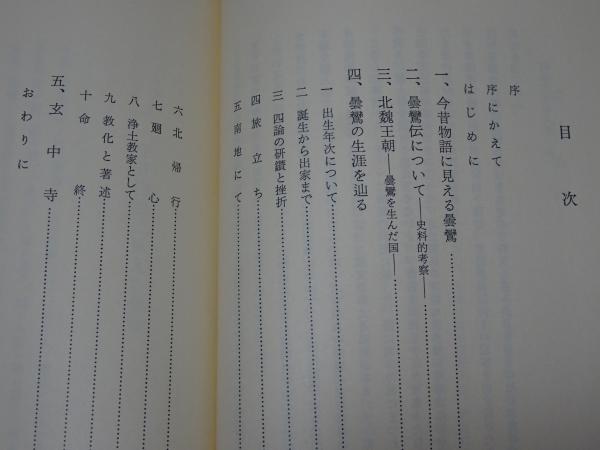 目次
序
序にかえて
はじめに
一、今昔物語に見える曇鸞
二、曇鸞伝について――史料的考察――
三、北魏王朝――曇鸞を生んだ国――
四、曇鸞の生涯を辿る
一 出生年次について
二 誕生から出家まで
三 四論の研鑽と挫折
四 旅立ち
五 南地にて
六 北帰行
七 廻心
八 浄土教家として
九 教化と著述
十 命終
五、玄中寺
おわりに